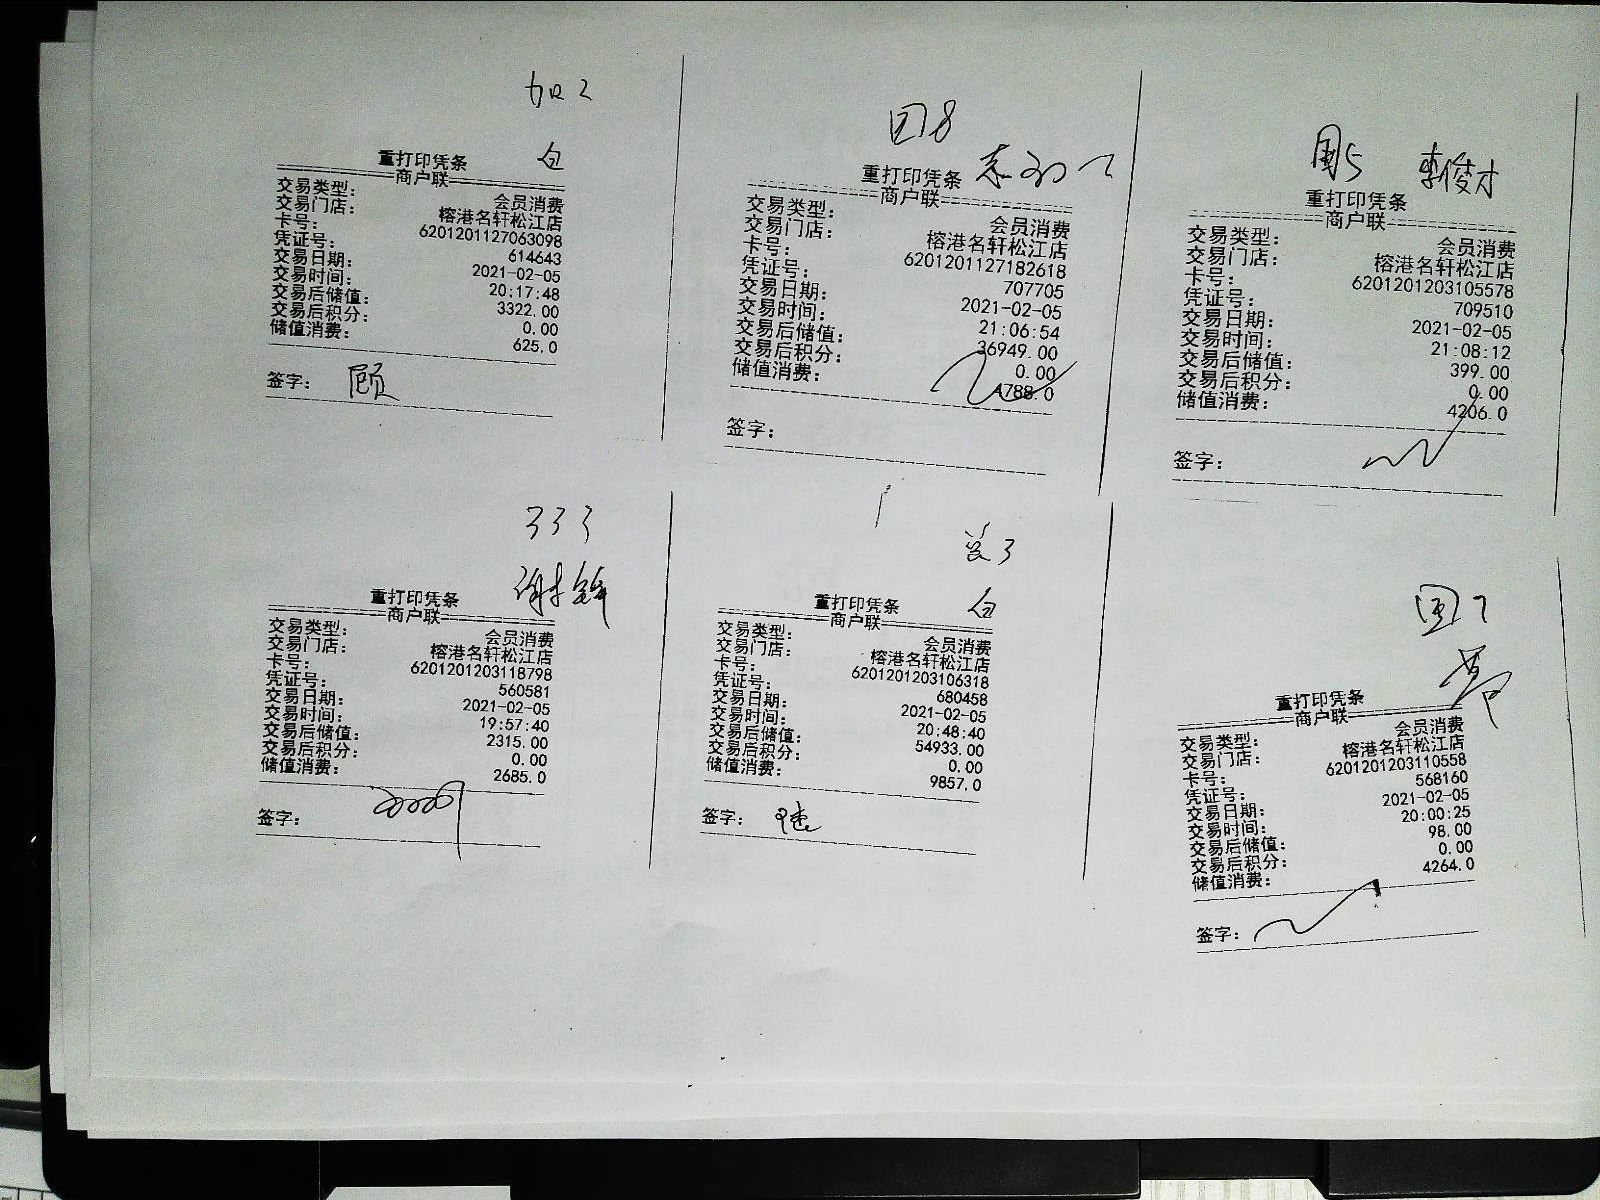 加2
白
重打印凭条
商户联
交易类型: 会员消费
交易门店: 榕港名轩松江店
卡号: 6201201127063098
凭证号: 614643
交易日期: 2021-02-05
交易时间: 20:17:48
交易后储值: 3322.00
交易后积分: 0.00
储值消费: 625.0
签字: 顾
团8
重打印凭条
商户联
交易类型: 会员消费
交易门店: 榕港名轩松江店
卡号: 6201201127182618
凭证号: 707705
交易日期: 2021-02-05
交易时间: 21:06:54
交易后储值: 36949.00
交易后积分: 0.00
储值消费: 4788.0
签字:
5 李俊才
重打印凭条
商户联
交易类型: 会员消费
交易门店: 榕港名轩松江店
卡号: 6201201203105578
凭证号: 709510
交易日期: 2021-02-05
交易时间: 21:08:12
交易后储值: 399.00
交易后积分: 0.00
储值消费: 4206.0
签字:
333
重打印凭条
商户联
交易类型: 会员消费
交易门店: 榕港名轩松江店
卡号: 6201201203118798
凭证号: 560581
交易日期: 2021-02-05
交易时间: 19:57:40
交易后储值: 2315.00
交易后积分: 0.00
储值消费: 2685.0
签字:
3
白
重打印凭条
商户联
交易类型: 会员消费
交易门店: 榕港名轩松江店
卡号: 6201201203106318
凭证号: 680458
交易日期: 2021-02-05
交易时间: 20:48:40
交易后储值: 54933.00
交易后积分: 0.00
储值消费: 9857.0
签字:
7
重打印凭条
商户联
交易类型: 会员消费
交易门店: 榕港名轩松江店
卡号: 6201201203110558
凭证号: 568160
交易日期: 2021-02-05
交易时间: 20:00:25
交易后储值: 98.00
交易后积分: 0.00
储值消费: 4264.0
签字: